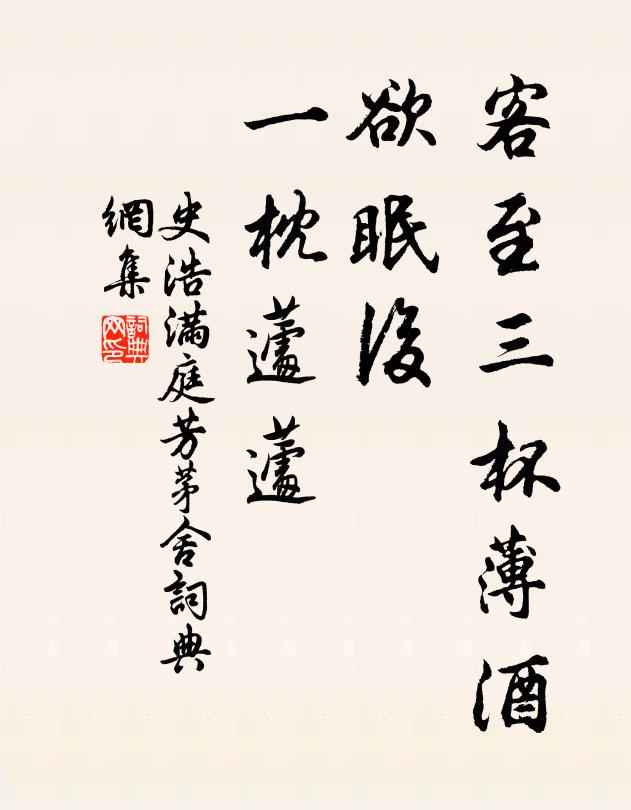 客至三杯薄酒
欲眠後
一枕蘧蘧
史浩滿庭芳茅舍詞典
網集
詞典
网印